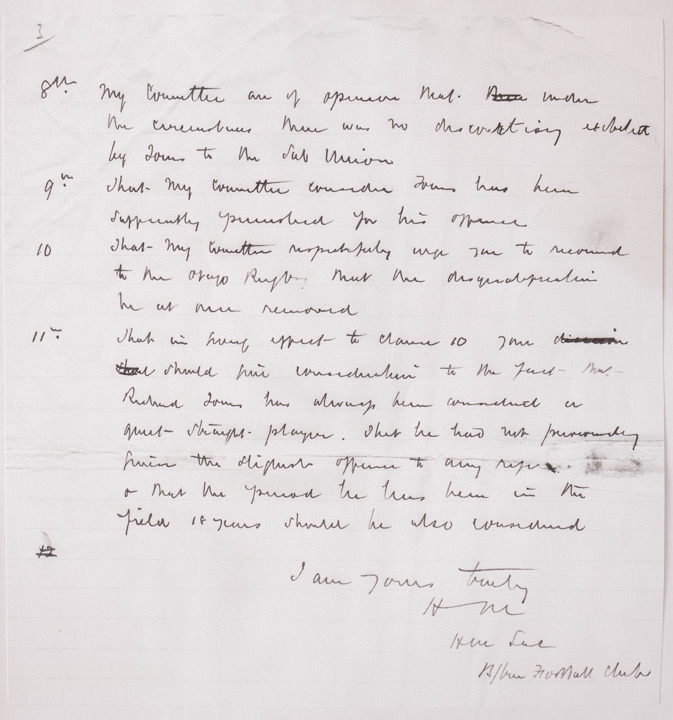 3
8th My Committee are of opinion that under
the circumstances there was no discourtesy exhibited
by Jones to the Sub Union
9th That My Committee consider Jones has been
sufficiently punished for his offence
10 That My Committee respectfully urge you to recomend
to the Otago Rugby that the disqualification
be at once removed
11th That in giving effect to clause 10 you
should give consideration to the fact that
Richard Jones has always been considered a
quiet straight player. That he had not previously
given the slightest offence to any
& that the period he has been in the
field 18 years should be also considered
12
I am yours truly
H
Hon Sec
Football Club